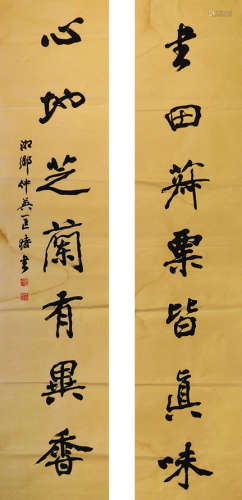 書田菽粟皆真味
心地芝蘭有異香
湘鄉仲英匡
書